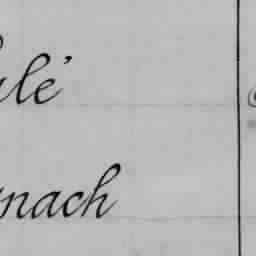 ule'
nach